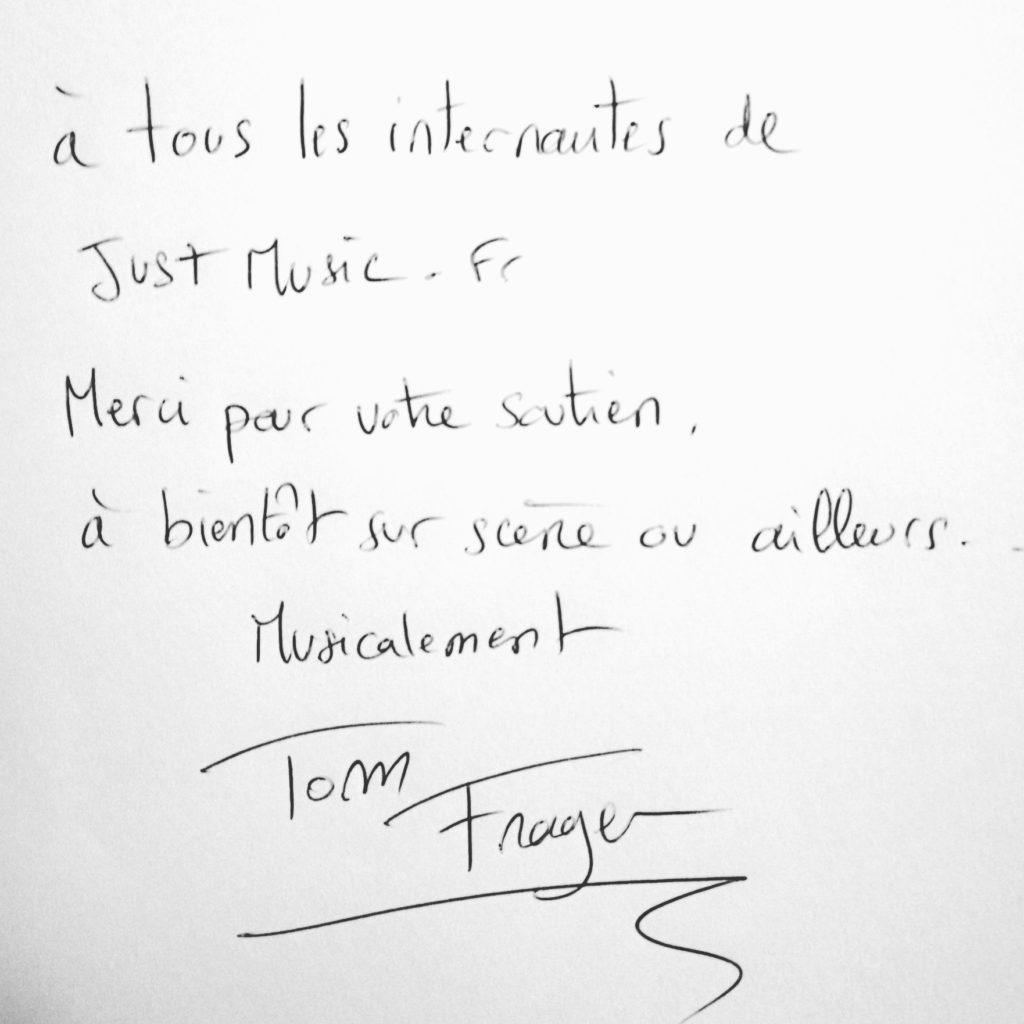 à tous les internautes de
Just Music. Fr
Merci pour votre soutien,
à bientôt sur scène ou ailleurs..
Musicalement
Tom
Frager